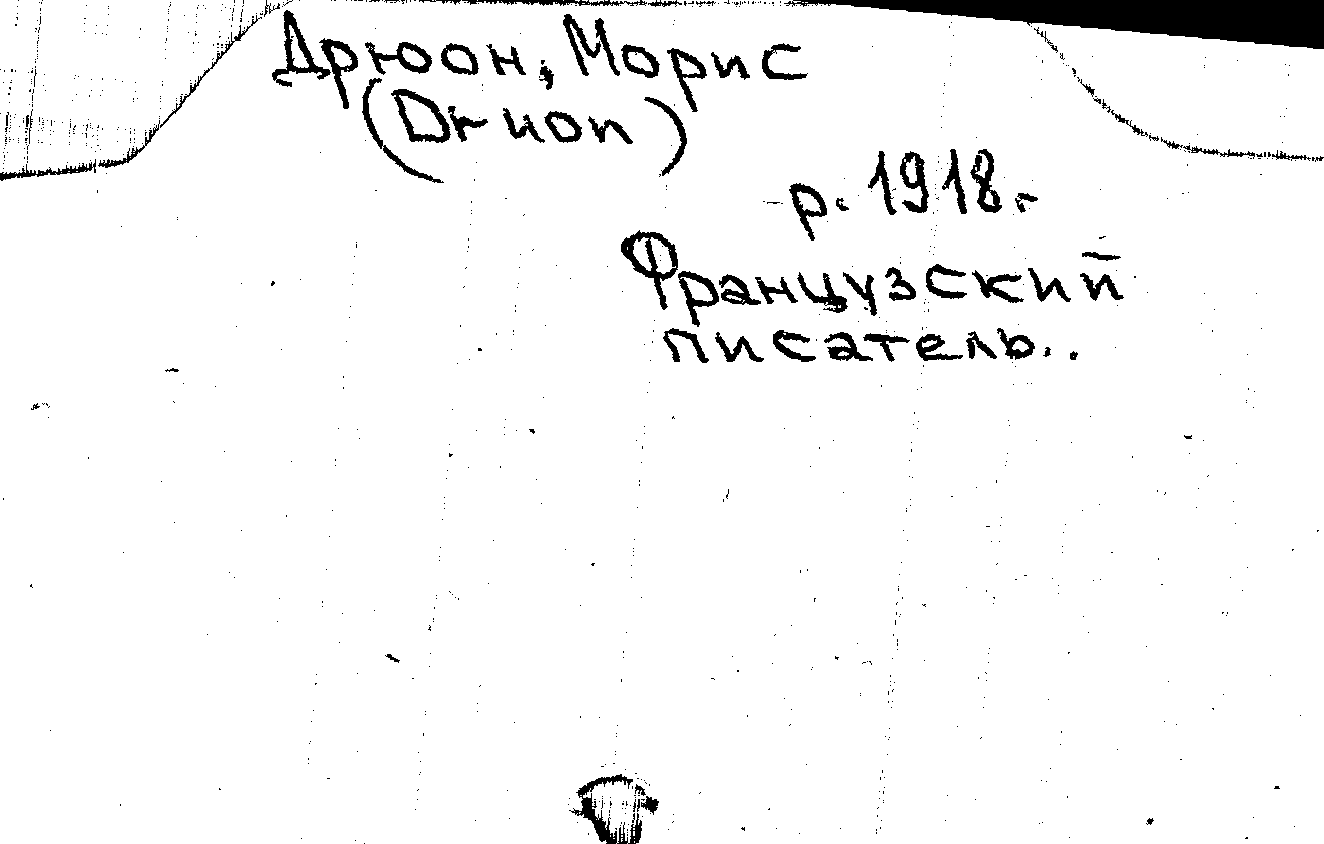 Дрюон, Морис
(Druon)
р. 1918г.
Французский
писатель..